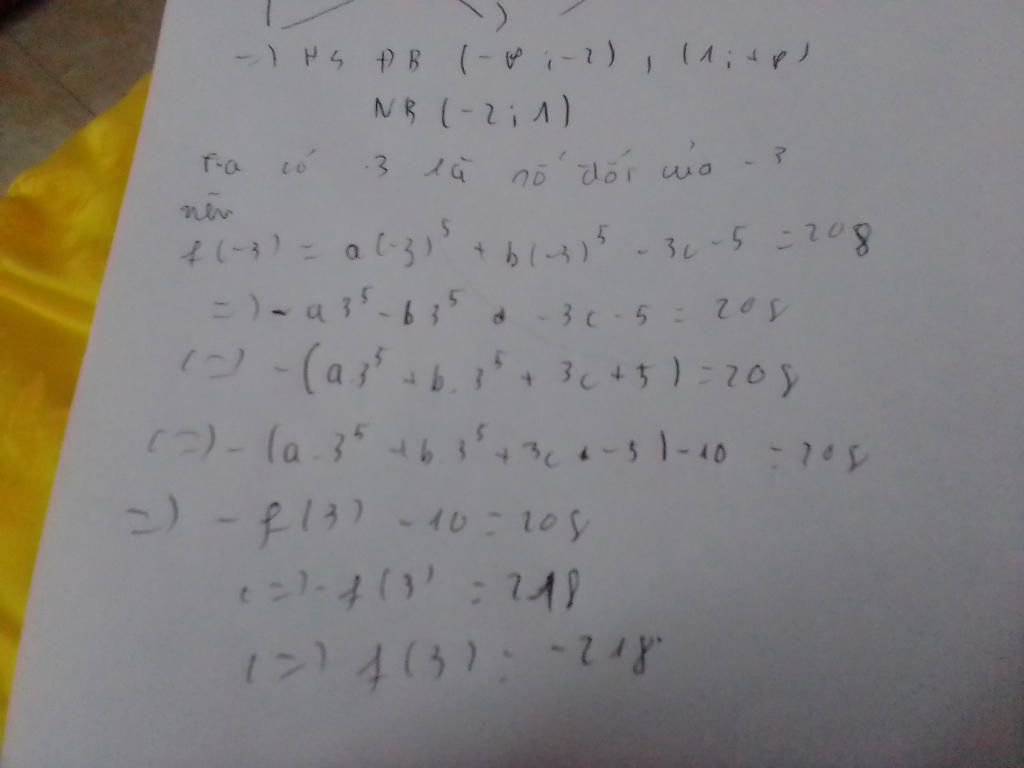 =) HS ĐB (-∞; -2), (1; +∞)
NB (-2; 1)
Ta có 3 là số đối của -3
nên
f(-3) = a(-3)^5 + b(-3)^5 - 3c - 5 = 208
=) -a3^5 - b3^5 - 3c - 5 = 208
(=) -(a.3^5 + b.3^5 + 3c + 5) = 208
(=) -(a.3^5 + b.3^5 + 3c - 5) - 10 = 208
=) -f(3) - 10 = 208
(=) -f(3) = 218
(=) f(3) = -218